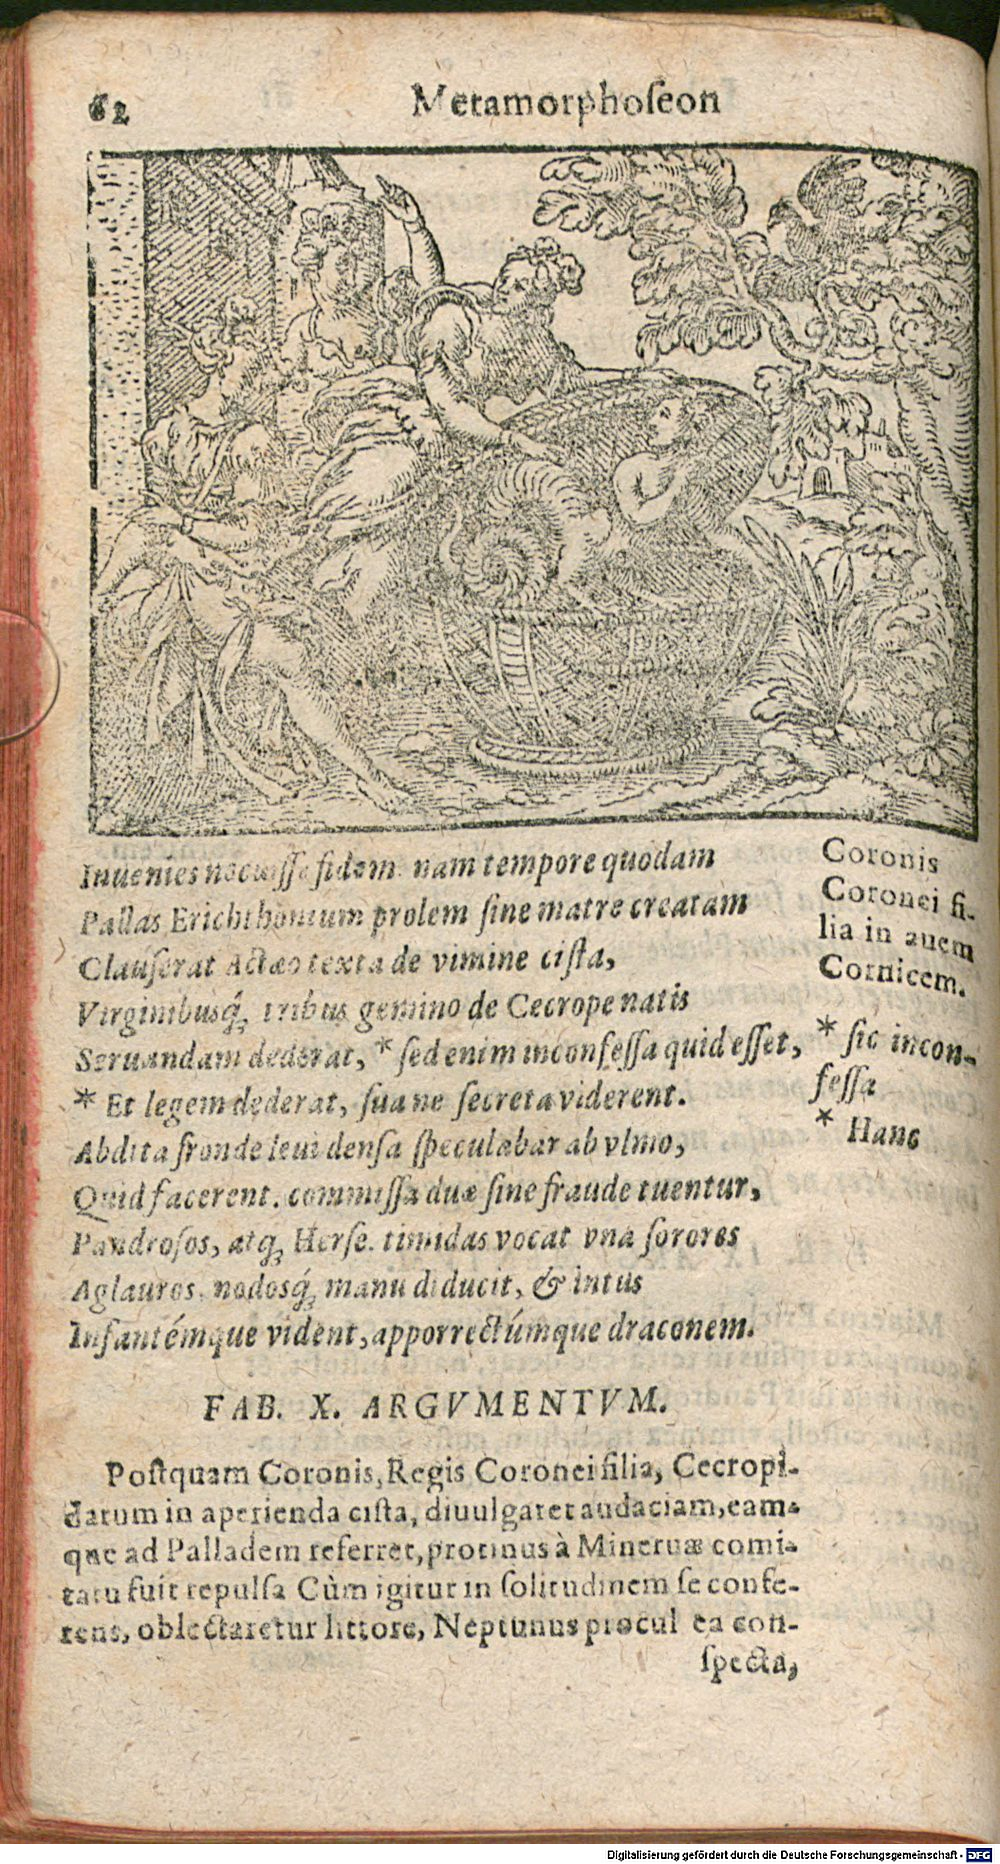 62
Metamorphoseon
Inuenies nocuisse fidem. nam tempore quodam
Pallas Erichthonium prolem sine matre creatam
Clauserat Actæo texta de vimine cista,
Virginibusq́; tribus gemino de Cecrope natis
Seruandam dederat, * sed enim inconfessa quid esset,
* Et legem dederat, sua ne secreta viderent.
Abdita fronde leui densa speculabar ab vlmo,
Quid facerent. commissa duæ sine fraude tuentur,
Pandrosos, atq; Herse. timidas vocat vna sorores
Aglauros. nodosq́; manu diducit, & intus
Infantémque vident, apporrectúmque draconem.
Coronis
Coronei fi-
lia in auem
Cornicem.
* sic incon-
fessa
* Hanc
FAB. X. ARGVMENTVM.
Postquam Coronis, Regis Coronei filia, Cecropi-
darum in aperienda cista, diuulgaret audaciam, eam-
que ad Palladem referret, protinus à Mineruæ comi-
tatu fuit repulsa Cùm igitur in solitudinem se confe-
rens, oblectaretur littore, Neptunus procul ea con-
specta,
Digitalisierung gefördert durch die Deutsche Forschungsgemeinschaft - DFG